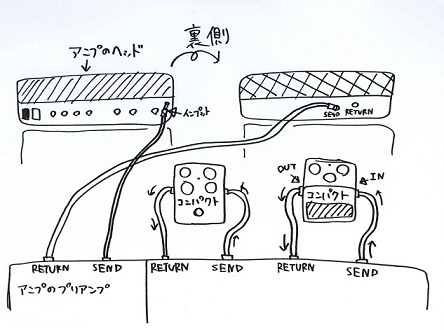 アンプのヘッド
裏側
インプット
SEND RETURN
OUT
IN
コンパクト
コンパクト
RETURN
SEND
RETURN
SEND
RETURN
SEND
アンプのプリアンプ